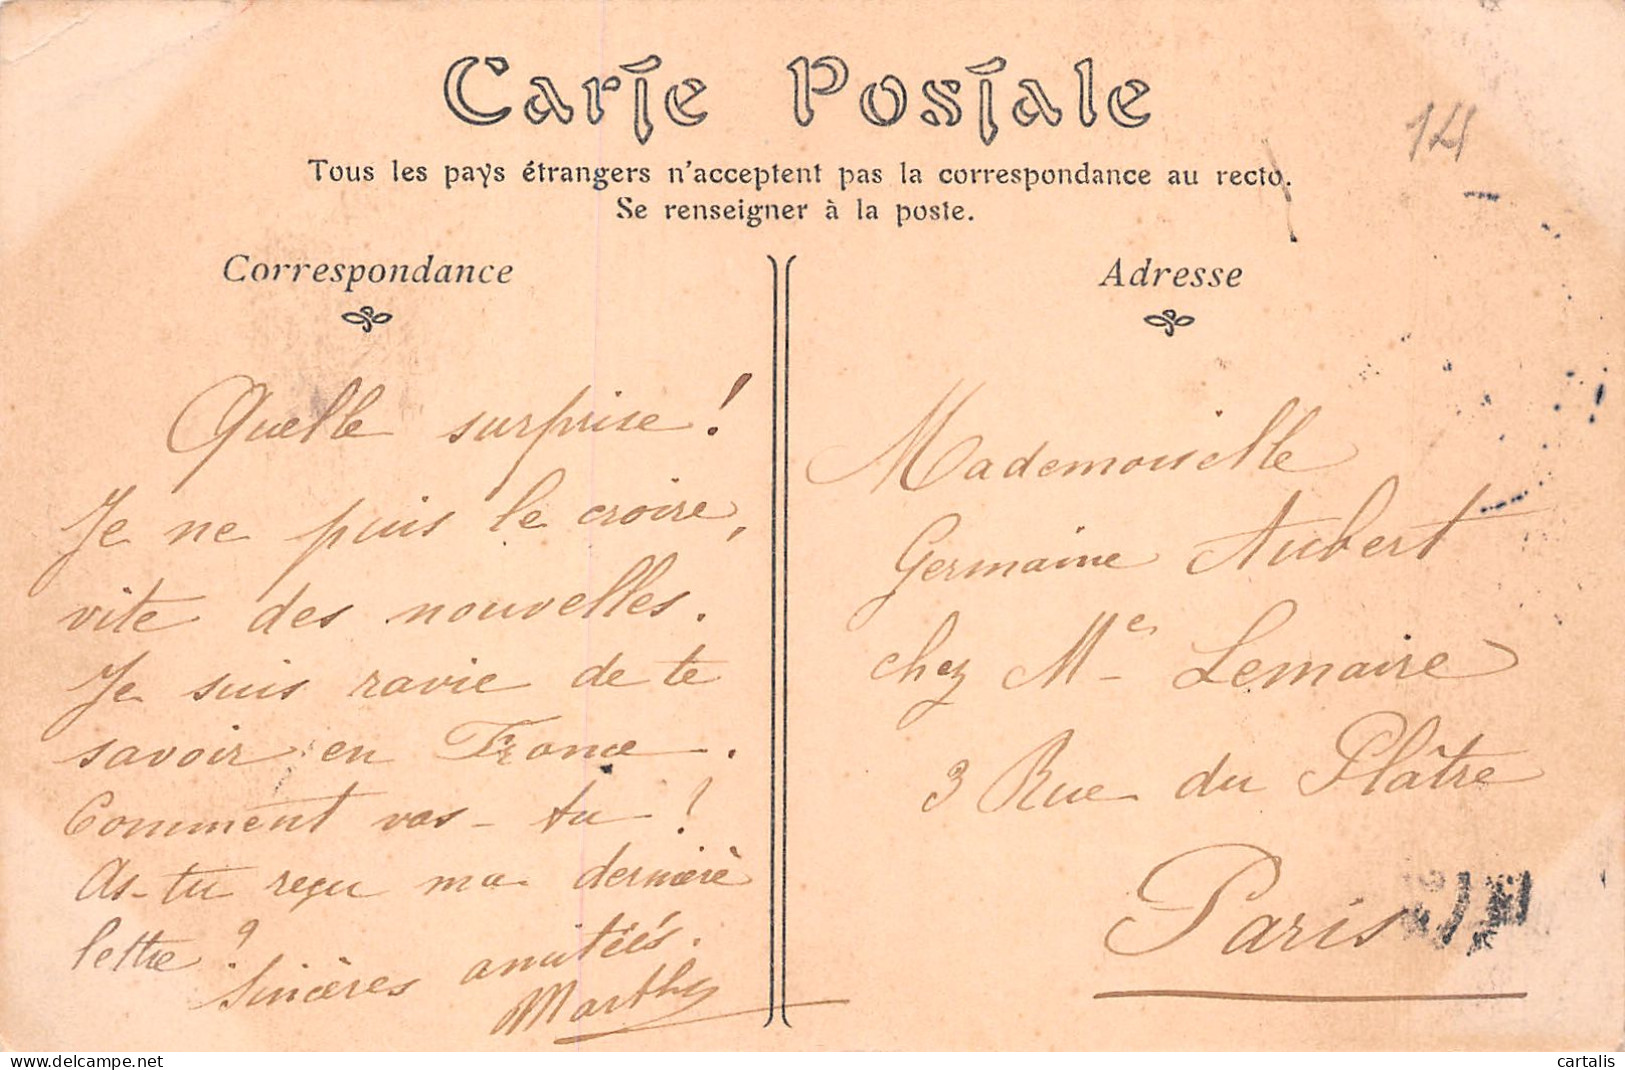 Carte Postale
14
Tous les pays étrangers n'acceptent pas la correspondance au recto.
Se renseigner à la poste.
Correspondance
Quelle surprise !
Je ne puis le croire,
vite des nouvelles.
Je suis ravie de te
savoir en France.
Comment vas-tu ?
As-tu reçu ma dernière
lettre ?
Sincères amitiés.
Marthe
Adresse
Mademoiselle
Germaine Aubert
chez Me Lemaire
3 Rue du Plâtre
Paris
cartalis